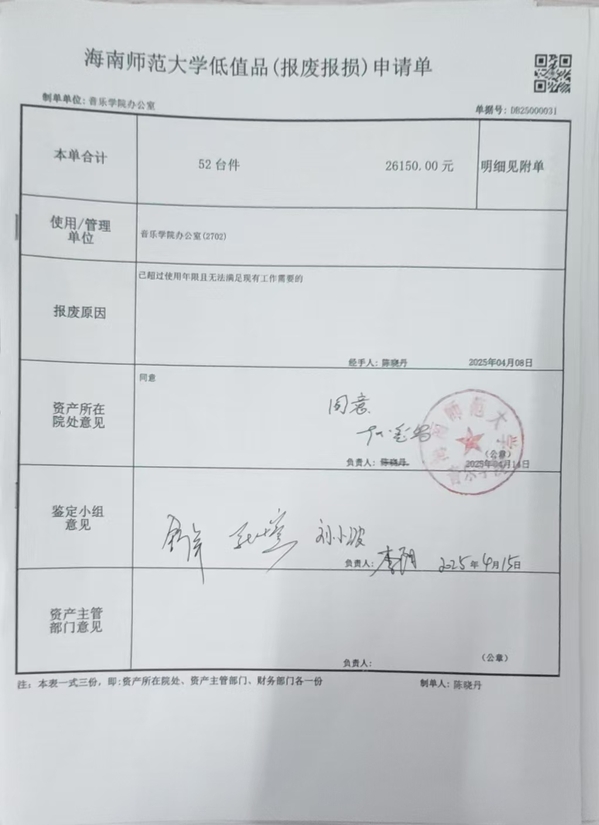 海南师范大学低值品(报废报损)申请单
制单单位: 音乐学院办公室
单据号: DB25000031
本单合计
52台件
26150.00 元
明细见附单
使用/管理
单位
音乐学院办公室(2702)
报废原因
已超过使用年限且无法满足现有工作需要的
经手人: 陈晓丹
2025年04月08日
资产所在
院处意见
同意
同意
海南师范大学
音乐学院
(公章)
负责人: 陈晓丹
2025年04月14日
鉴定小组
意见
刘小波
负责人:
2025年4月15日
资产主管
部门意见
负责人:
(公章)
注: 本表一式三份，即:资产所在院处、资产主管部门、财务部门各一份
制单人: 陈晓丹